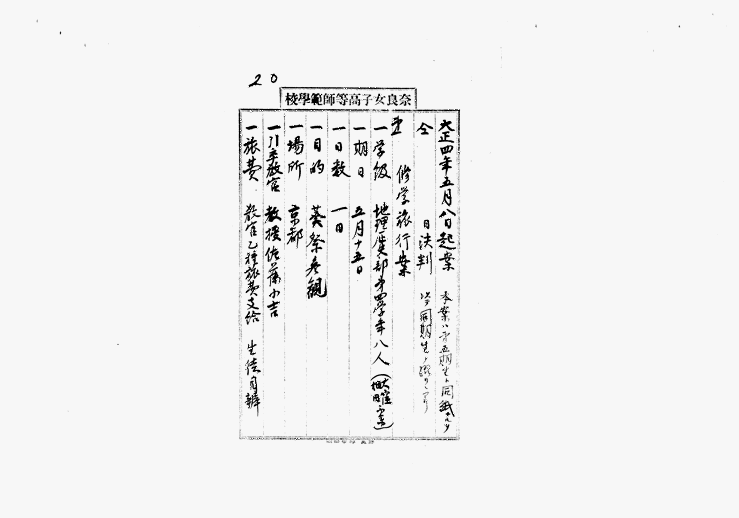 20
奈良女子高等師範學校
大正四年五月八日起案
仝 日決判
本案ハ第五期生ト同
同期生ノ
修学旅行案
一学級 地理歴史部第四学年八人
一期日 五月十五日
一日数 一日
一目的 葵祭参観
一場所 京都
一引率教官 教授佐藤小吉
一旅費 教官乙種旅費支給 生徒自辨